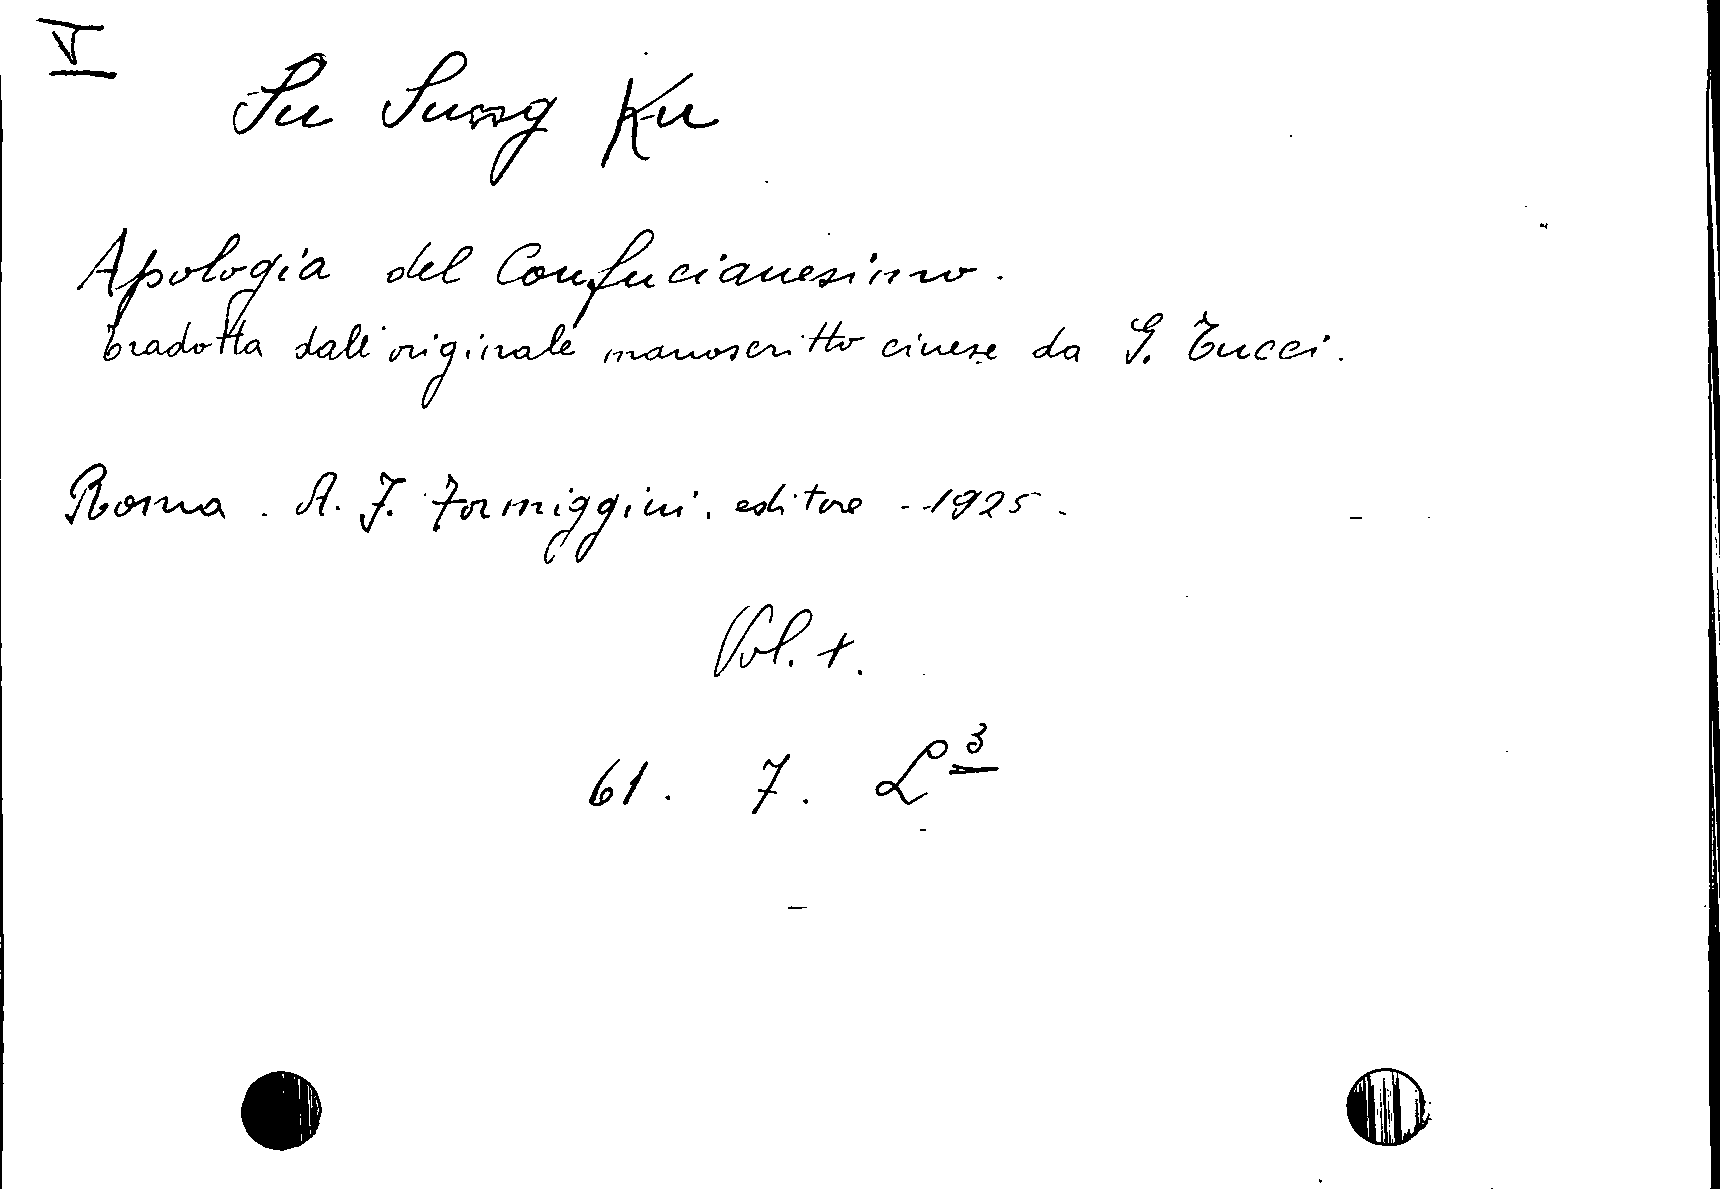 V
Su Sung Ku
Apologia del Confucianesimo.
tradotta dall'originale manoscritto cinese da G. Tucci.
Roma. A. F. Formiggini. editore - 1925.
Vol. 1.
61. 7. L 3